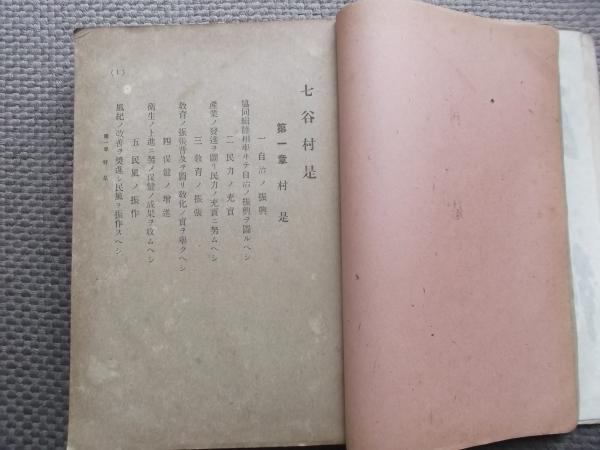 七谷村是
第一章 村是
一 自治ノ振興
協同輯睦相率ヰテ自治ノ振興ヲ圖ルヘシ
二 民力ノ充實
產業ノ發達ヲ圖リ民力ノ充實ニ努ムヘシ
三 敎育ノ振張
敎育ノ振張普及ヲ圖リ敎化ノ實ヲ擧クヘシ
四 保健ノ增進
衛生ノ上進ニ努メ保健ノ成果ヲ收ムヘシ
五 民風ノ振作
風紀ノ改善ヲ奬進シ民風ヲ振作スヘシ
第一章 村是
(1)